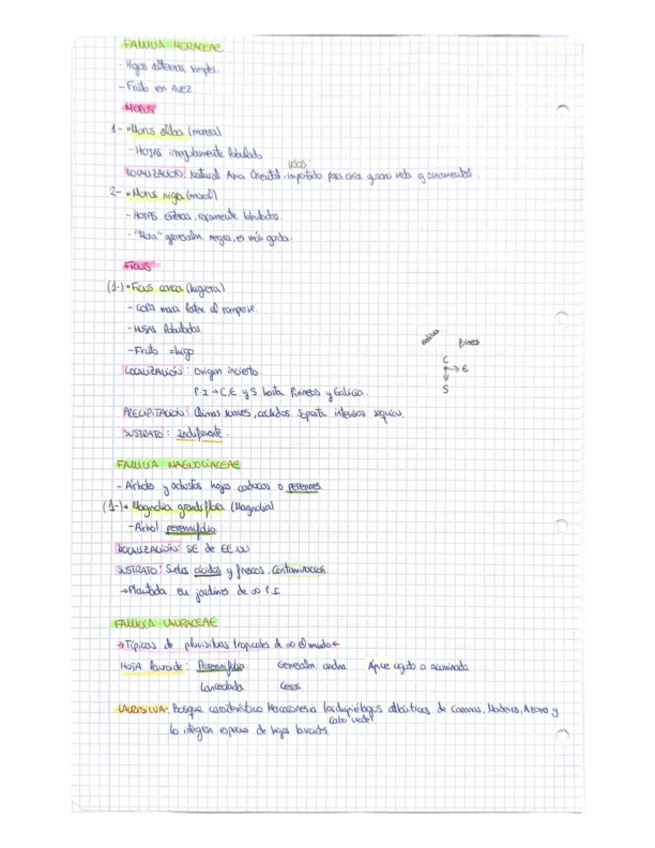 FAMILIA MORACEAE
- Hojas alternas, simples.
- Fruto en nuez
MORUS
1- • Morus alba (morera)
- HOJAS irregularmente lobulado
usos:
LOCALIZACIÓN: Natural Asia Oriental, importado para cría gusano seda y ornamental.
2- • Morus nigra (moral)
- HOJAS enteras, raramente lobuladas.
- "Mora" generalm. negra, es más gorda.
FICUS
(1-) • Ficus carica (higuera)
- COPA mana latex al romperse.
- HOJAS lobuladas
- Fruto = higo
LOCALIZACIÓN: Origen incierto
P.I → C, E y S hasta Pirineos y Galicia.
Galicia Pirineos
C
→ E
S
PRECIPITACIÓN: Climas suaves, cálidos soporta intensas sequías.
SUSTRATO: Indiferente.
FAMILIA MAGNOLIACEAE
- Árboles y arbustos hojas caducas o perennes
(1-) • Magnolia grandiflora (Magnolia)
- Árbol perennifolio
LOCALIZACIÓN: SE de EE.UU
SUSTRATO: Suelos ácidos y frescos. Contaminación
→ Plantada en jardines de ∞ P.I.
FAMILIA LAURACEAE
→ Típicas de pluvisilvas tropicales de ∞ el mundo ←
HOJA lauroide: Perennifolia Generalm. ancha Ápice agudo o acuminado
Lanceolada Ceras
LAURISILVA: Bosque característico Macaronesia (archipiélagos atlánticos de Canarias, Madeira, Azores y
Cabo verde)
lo integran especies de hojas lauroides